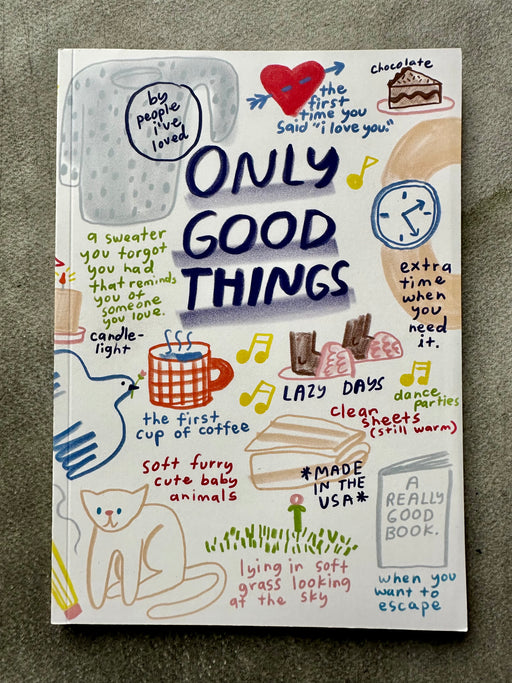 by
people
i've
loved
the
first
time you
said "i love you."
chocolate
ONLY
GOOD
THINGS
a sweater
you forgot
you had
that reminds
you of
someone
you love.
extra
time
when
you
need
it.
candle-
light
LAZY DAYS
dance
parties
the first
cup of coffee
clean
sheets
(still warm)
soft furry
cute baby
animals
*MADE
IN THE
USA*
A
REALLY
GOOD
BOOK.
lying in soft
grass looking
at the sky
when you
want to
escape